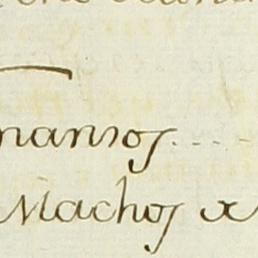 mansos....
Machos x